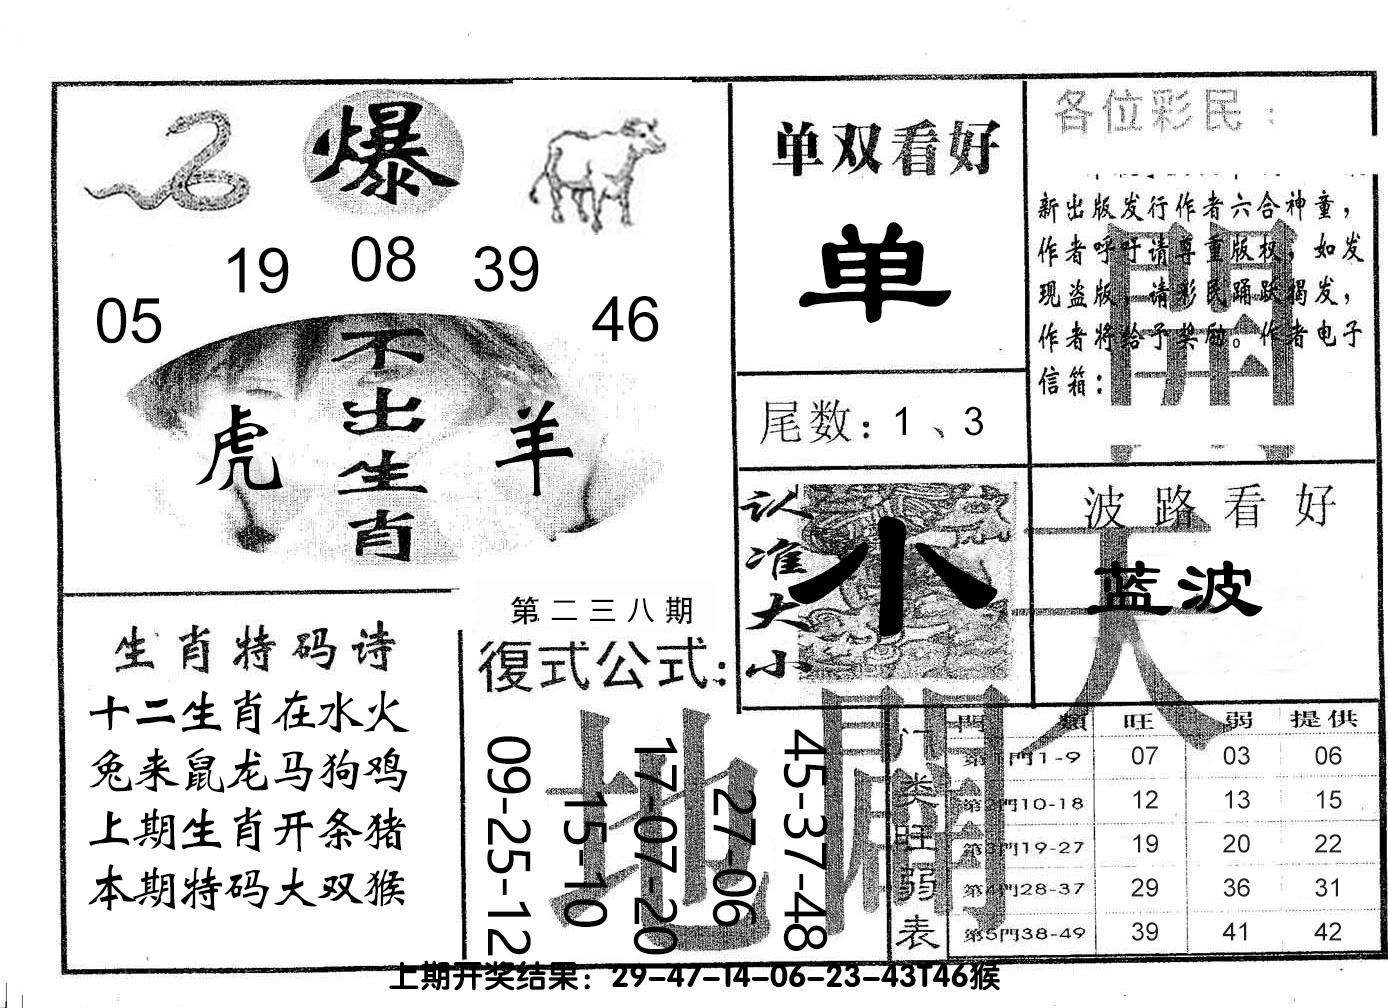 爆
19 08 39
05 46
不出生肖
虎 羊
单双看好
单
尾数：1、3
各位彩民：
新出版发行作者六合神童，
作者呼吁请尊重版权，如发
现盗版，请彩民踊跃揭发，
作者将给予奖励。作者电子
信箱：
開
认准大小
小
波路看好
蓝波
天
生肖特码诗
十二生肖在水火
兔来鼠龙马狗鸡
上期生肖开条猪
本期特码大双猴
第二三八期
復式公式：
09-25-12
15-10
17-07-20
27-06
45-37-48
地
門
门类旺弱表
門類 旺 弱 提供
第1門1-9 07 03 06
第2門10-18 12 13 15
第3門19-27 19 20 22
第4門28-37 29 36 31
第5門38-49 39 41 42
上期开奖结果：29-47-14-06-23-43T46猴